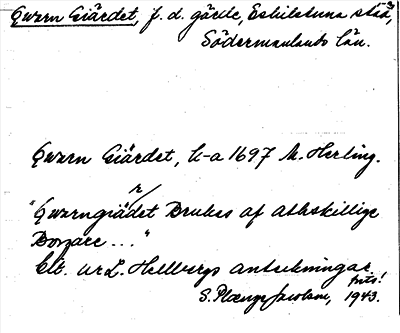 Qwarn Giärdet, f. d. gärde, Eskilstuna stad,
Södermanlands län.
Qwarn Giärdet, k-a 1697 M. Herling.
"Qwarngiärdet Brukas af athskillige
Borgare..."
Cit. ur L. Hellbergs anteckningar.
S. 1943.